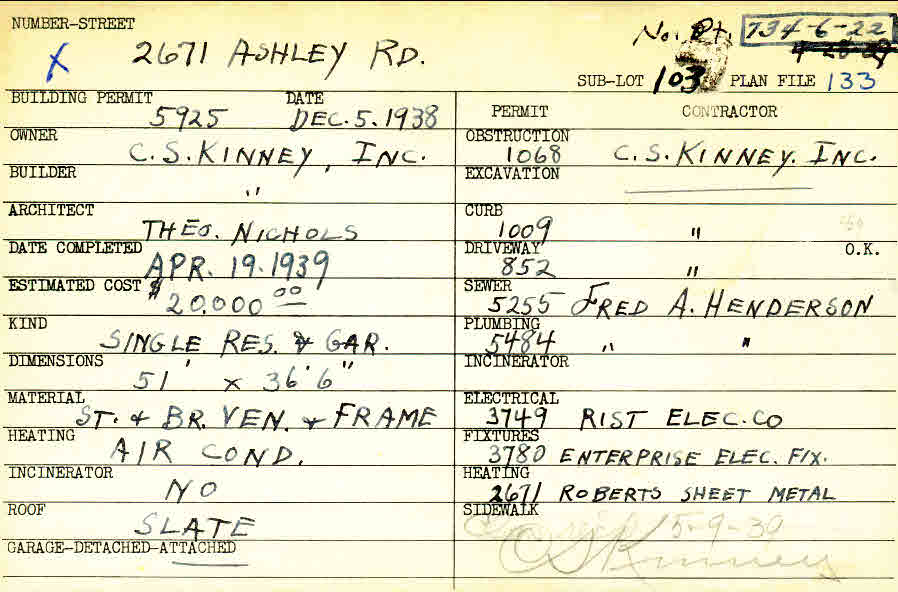 NUMBER-STREET
X 2671 ASHLEY RD.
No. Pt. 734-6-22
4-28-29
SUB-LOT 103 PLAN FILE 133
BUILDING PERMIT DATE
5925 DEC. 5. 1938
OWNER
C. S. KINNEY, INC.
BUILDER
"
ARCHITECT
THEO. NICHOLS
DATE COMPLETED
APR. 19. 1939
ESTIMATED COST $
20,000 00
KIND
SINGLE RES. & GAR.
DIMENSIONS
51' x 36'6"
MATERIAL
ST. & BR. VEN. & FRAME
HEATING
AIR COND.
INCINERATOR
NO
ROOF
SLATE
GARAGE-DETACHED-ATTACHED
PERMIT CONTRACTOR
OBSTRUCTION
1068 C. S. KINNEY. INC.
EXCAVATION
CURB
1009 "
DRIVEWAY O.K.
852 "
SEWER
5255 FRED A. HENDERSON
PLUMBING
5484 " "
INCINERATOR
ELECTRICAL
3749 RIST ELEC. CO
FIXTURES
3780 ENTERPRISE ELEC. FIX.
HEATING
2671 ROBERTS SHEET METAL
SIDEWALK
5-9-39
C S Kinney